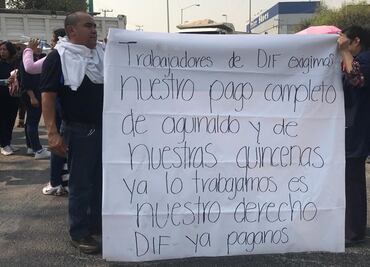 Trabajadores de DIF exigimos
nuestro pago completo
de aguinaldo y de
nuestras quincenas
ya lo trabajamos es
nuestro derecho
DIF ya paganos